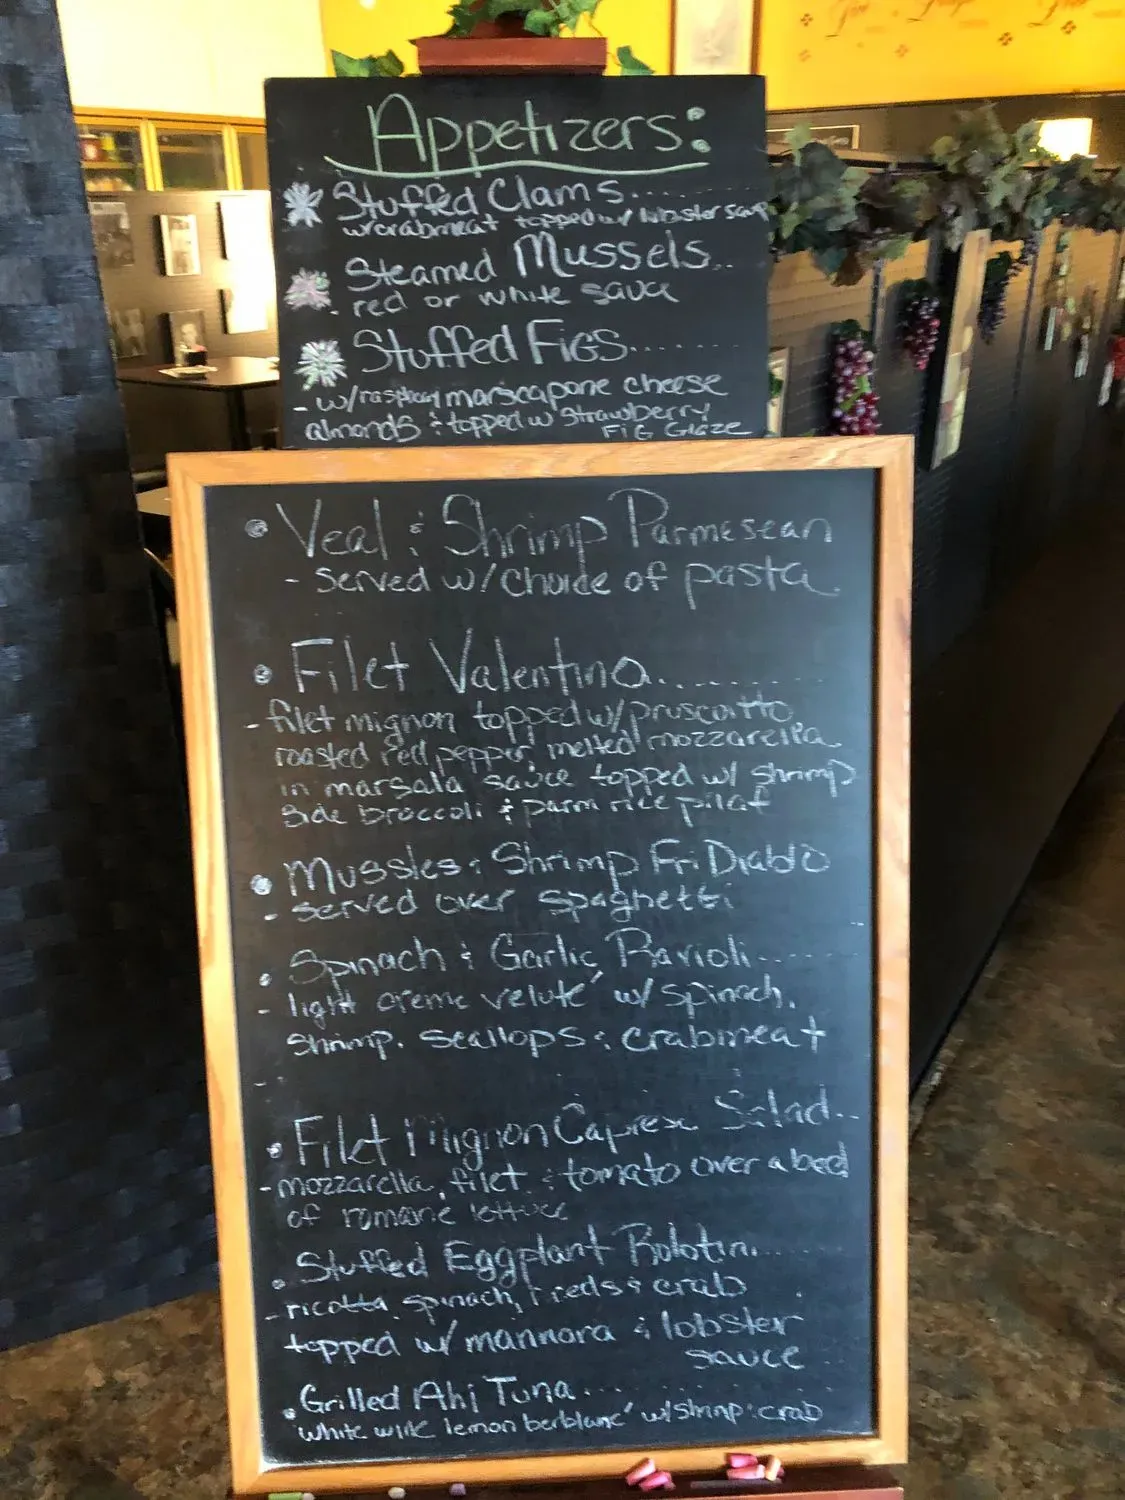 Appetizers:
Stuffed Clams......
w/crabmeat topped w/ lobster sauce
Steamed Mussels...
- red or white sauce
Stuffed FIGS.......
- w/raspberry marscapone cheese
almonds & topped w strawberry
FIG Glaze
• Veal & Shrimp Parmesean
- served w/choice of pasta
• Filet Valentino.........
- filet mignon topped w/pruscoitto,
roasted red pepper, melted mozzarella
in marsala sauce topped w/ shrimp
side broccoli & parm rice pilaf
• Mussles & Shrimp Fri Diablo
- served over spaghetti
• Spinach & Garlic Ravioli.......
- light creme velute' w/ spinach,
shrimp, scallops & crabmeat
• Filet Mignon Caprese Salad...
- mozzarella, filet & tomato over a bed
of romane lettuce
• Stuffed Eggplant Rolotini......
- ricotta, spinach, reds & crab
topped w/ mannara & lobster
sauce
• Grilled Ahi Tuna.......
white wine lemon berblanc' w/shrimp & crab